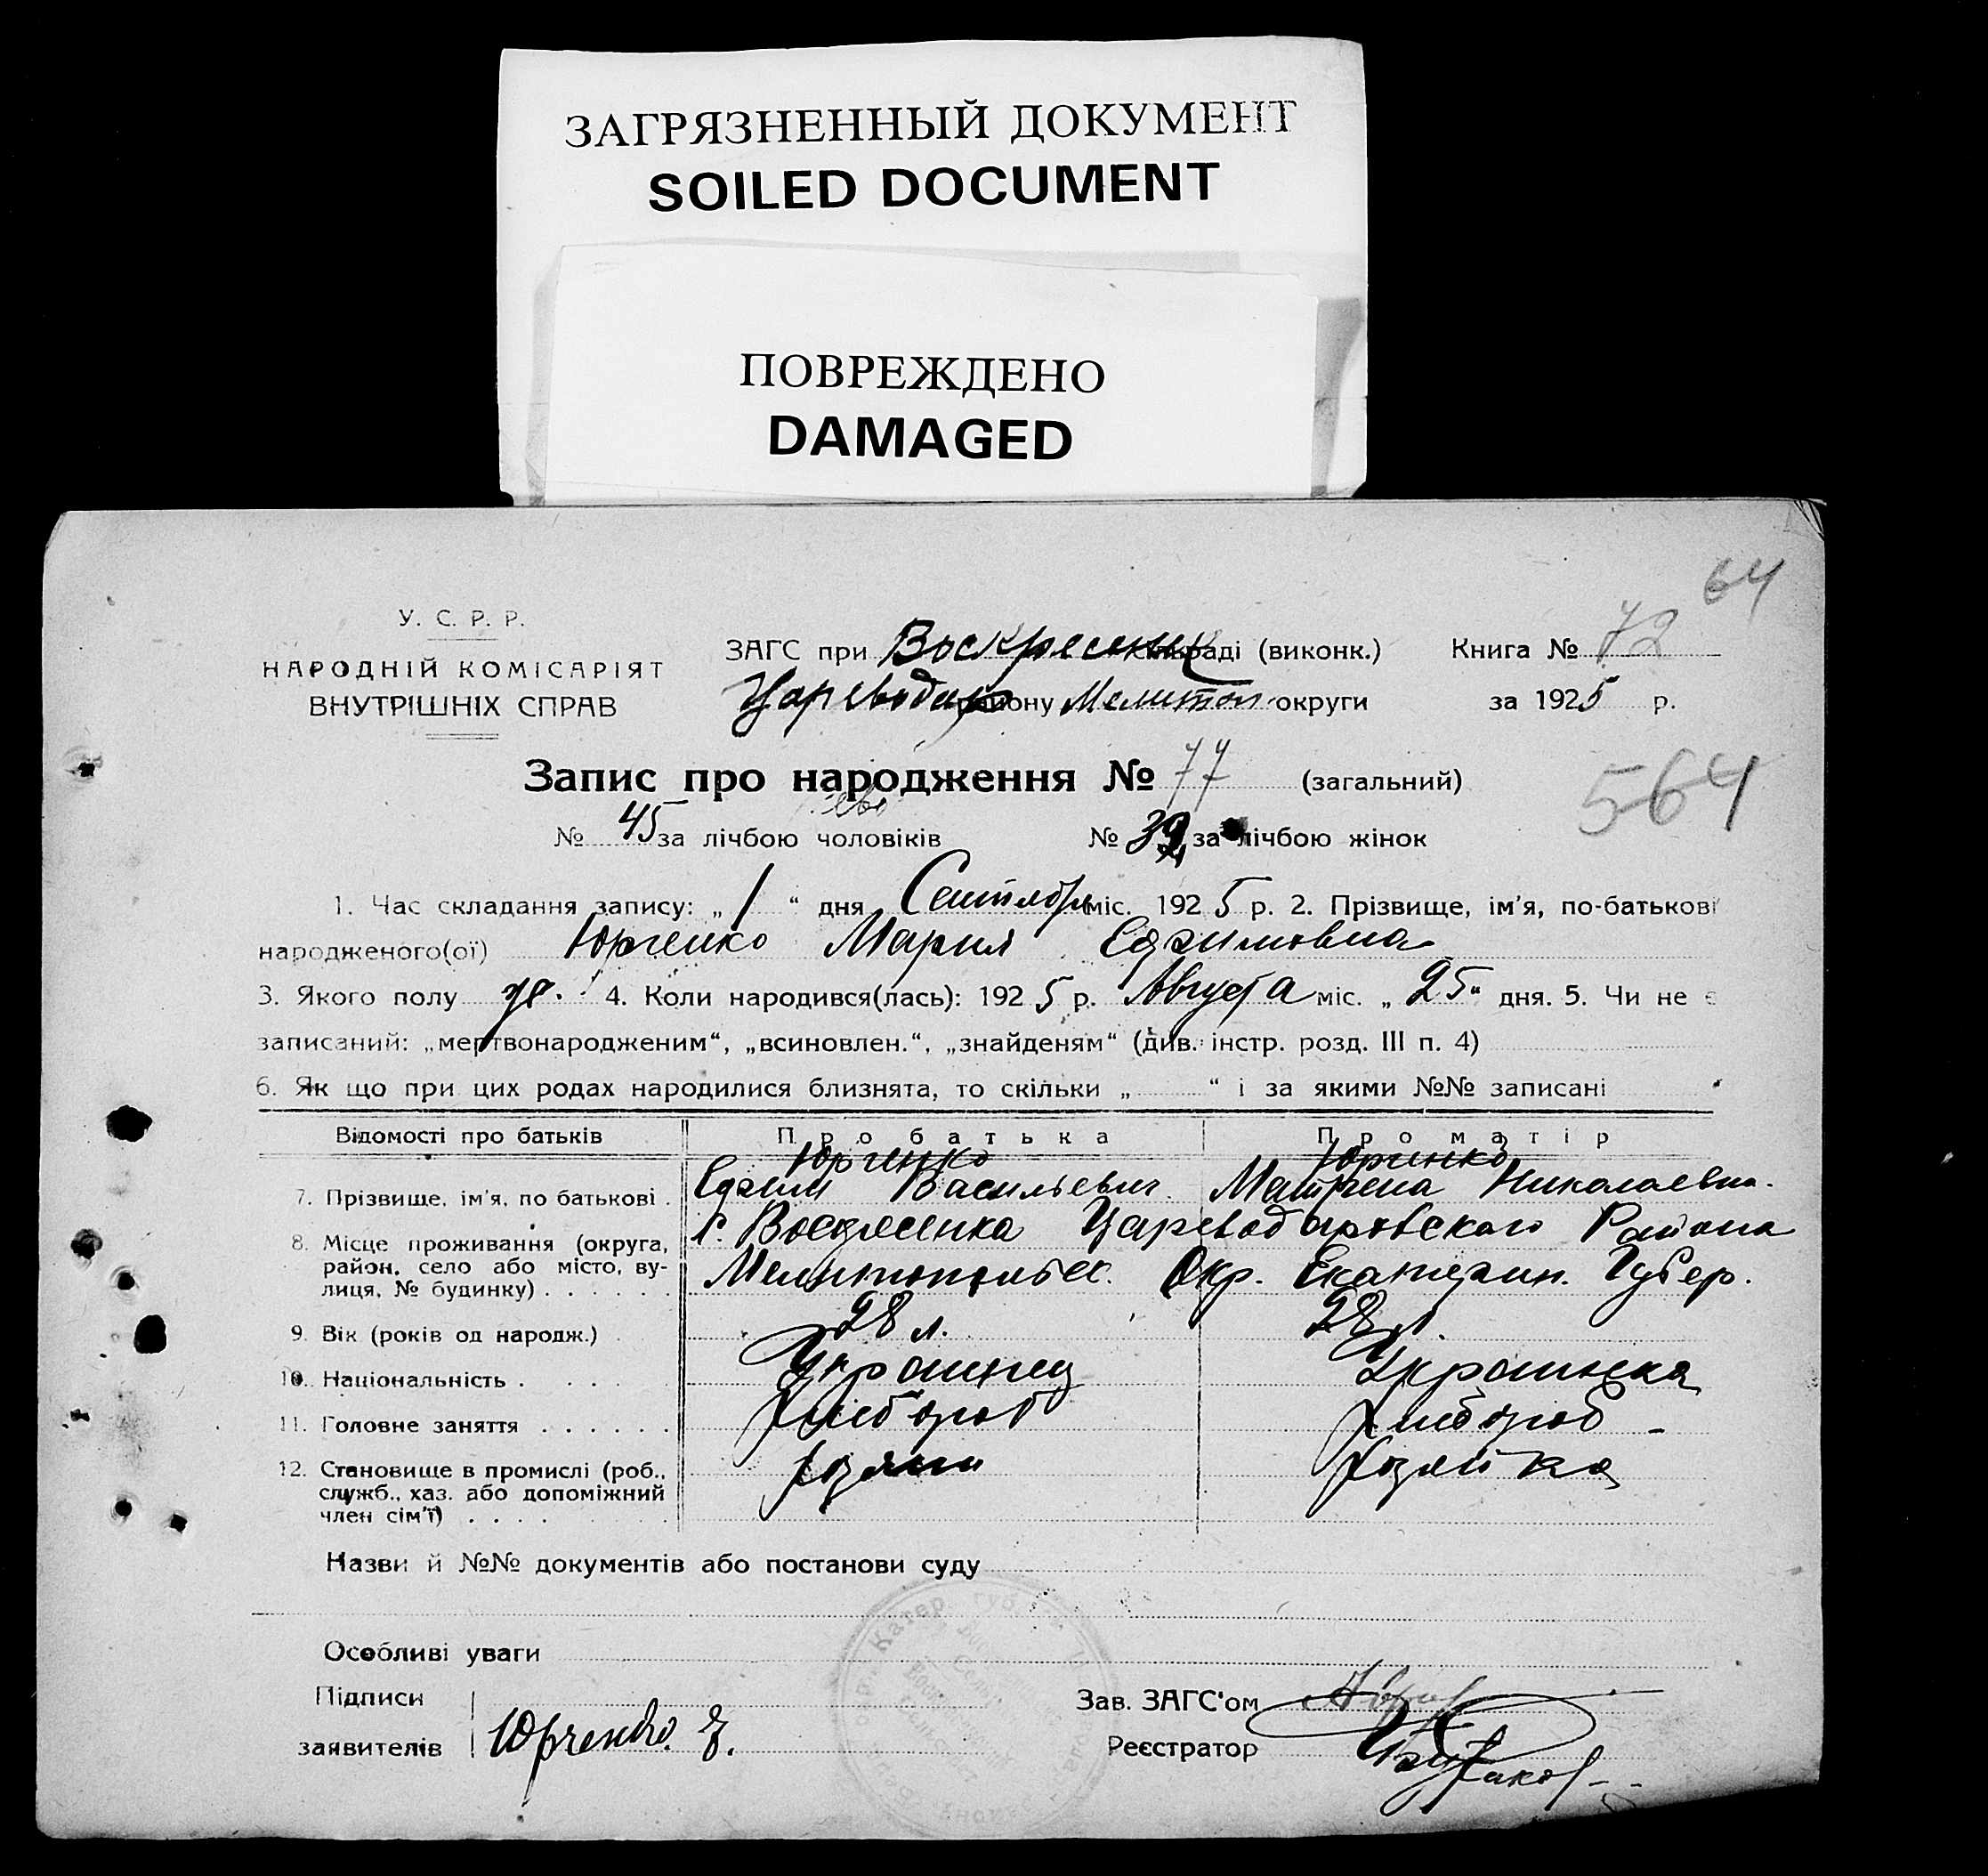 ЗАГРЯЗНЕННЫЙ ДОКУМЕНТ
SOILED DOCUMENT
ПОВРЕЖДЕНО
DAMAGED
64
У. С. Р. Р.
НАРОДНІЙ КОМІСАРІЯТ
ВНУТРІШНІХ СПРАВ
ЗАГС при Воскресенск сільраді (виконк.) Книга № 72
Цареводар району Мелитоп округи за 1925 р.
Запис про народження № 77 (загальний)
564
№ 45 за лічбою чоловіків № 32 за лічбою жінок
1. Час складання запису: „ 1 “ дня Сентября міс. 1925 р. 2. Прізвище, ім'я, по-батькові
народженого(ої) Юрченко Мария Ефимовна
3. Якого полу 4. Коли народився(лась): 1925 р. Августа міс. „ 25 “ дня. 5. Чи не є
записаний: „мертвонародженим“, „всиновлен.“, „знайденям“ (див. інстр. розд. III п. 4)
6. Як що при цих родах народилися близнята, то скільки „ “ і за якими №№ записані
Відомості про батьків Про батька Про матір
Юрченко Юрченко
7. Прізвище, ім'я, по батькові . Ефим Васильевич Матрена Николаевна.
8. Місце проживання (округа, район, село або місто, вулиця, № будинку) . . . . . . с. Воскресенка Цареводаровского Района
Мелитопольск. Окр. Екатерин. Губер.
9. Вік (років од народж.) . 28 л. 28 л.
10. Національність . . . . Украинец Украинка
11. Головне заняття . . . . . . Хлебороб Хлебороб
12. Становище в промислі (роб., служб., хаз. або допоміжний член сім'ї) . . . . Хозяин Хозяйка
Назви й №№ документів або постанови суду
Особливі уваги
Підписи
заявителів Юрченко. Е.
Зав. ЗАГС'ом
Реєстратор